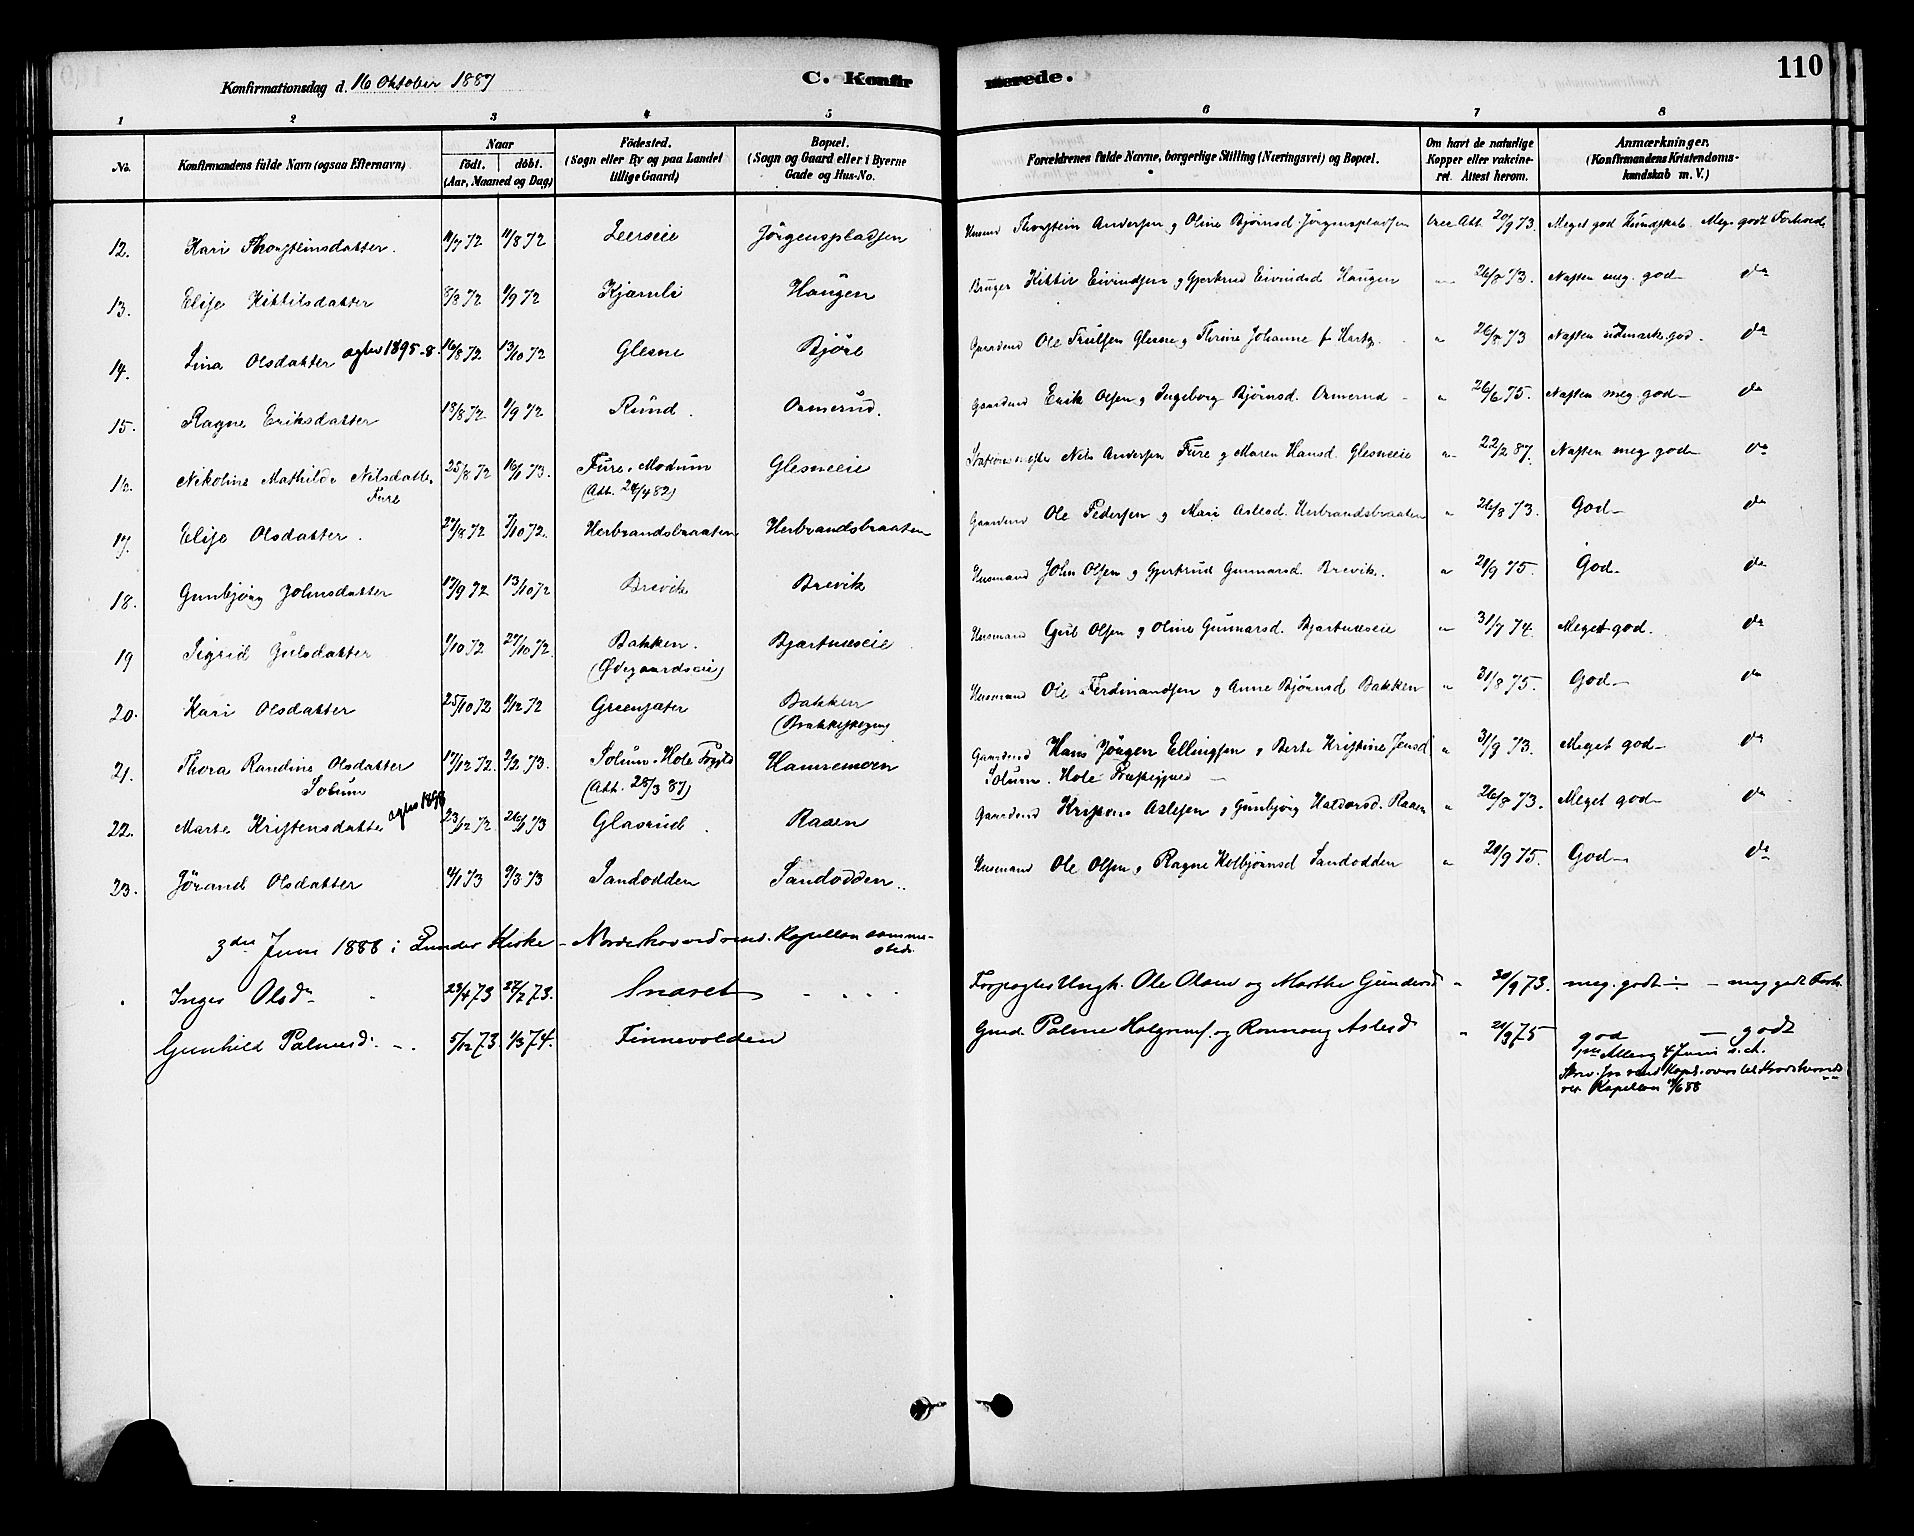 110
Konfirmationsdag d. 16 Oktober 1887 C. Konfirmerede.
1 2 3 4 5 6 7 8
No. Konfirmandens fulde Navn (ogsaa Efternavn) Naar födt. döbt. (Aar, Maaned og Dag) Födested. (Sogn eller By og paa Landet tillige Gaard) Bopæl. (Sogn og Gaard eller i Byerne Gade og Hus-No. Forældrenes fulde Navne, borgerlige Stilling (Næringsvei) og Bopæl. Om havt de naturlige Kopper eller vakcineret. Attest herom. Anmærkninger, (Konfirmandens Kristendomskundskab m. V.)
12. Kari Thorsteinsdatter. 11/7 72 11/8 72 Leerseie Jörgenspladsen Husmd Thorstein Andersen og Oline Bjørnsd. Jörgenspladsen Vacc Att. 20/9 73. Meget god Kundskab. Meg. godt Forhold
13. Elise Kittilsdatter 8/8 72 1/9 72 Kjærnli Haugen Bruger Kittil Eivindsen og Gjertrud Eivindsd Haugen 26/8 73. Næsten meg. god do
14. Lina Olsdatter 1895-8. 16/8 72 13/10 72 Glesne Björe Gaardmd Ole Trulsen Glesne og Thrine Johanne f. Hartz. " 26/8 73 Næsten udmærk. god. do
15. Ragne Eriksdatter 13/8 72 1/9 72 Rund. Ormerud. Gaardmd Erik Olsen og Ingeborg Bjørnsd. Ormerud " 26/6 75. Næsten meg. god do
16. Nikoline Mathilde Nilsdatter Fure 25/8 72 16/1 73. Fure. Modum (Att. 24/4 82) Glesneeie Nils Andersen Fure og Maren Hansd. Glesneeie " 22/2 87. Næsten meg god do
17. Elise Olsdatter. 27/8 72 7/10 72. Herbrandsbraaten Herbrandsbraaten Gaardmd Ole Pedersen og Mari Aslesd. Herbrandsbraaten " 26/8 73. God do
18. Gunbjörg Johnsdatter 17/9 72 13/10 72 Brevik Brevik Husmand John Olsen og Gjertrud Gunnarsd. Brevik. " 21/9 75. God. do
19 Sigrid Gulsdatter 1/10 72 27/10 72. Bakken. (Ødegaardseie) Bjertneseie Husmand Gul Olsen og Oline Gunnarsd. Bjertneseie " 31/7 74. Meget god. do
20. Kari Olsdatter 25/10 72 1/12 72 Greensæter Bakken Husmand Ole Ferdinandsen og Anne Bjørnsd Bakken " 31/8 75. God do
21. Thora Randine Olsdatter Solum 17/12 72. 2/2 73. Solum. Hole Prgjld (Att. 28/3 87) Hamremoen Gaardmd Hans Jörgen Ellingsen og Berte Kristine Jensd Solum. Hole Præstegjæld " 31/9 73. Meget god do
22. Marte Kristensdatter 1898 23/12 72. 26/1 73 Glasrud. Raaen Gaardmd Kristen Aslesen og Gunbjörg Haldorsd. Raaen " 26/8 73. Meget god do
23. Jörand Olsdatter 11/1 73 9/3 73 Sandodden Sandodden. Husmand Ole Olsen og Ragne Kolbjørnsd Sandodden " 21/9 75. God do
3die Juni 1888 i Lunder Kirke – Norderhov ved resid. Kapellan sammesteds
Inger Olsdr 23/4 73 27/2 73. Snaret Forpagter Ungk. Ole Olsen og Marthe Gundersd " 30/9 73. meg. godt – meg godt Forh.
Gunhild Palmesd. 5/12 73 1/3 74. Finnevolden Gmd. Palme Halgrimsf. og Rønnaug Aslesd " 21/9 75 god – godt
4 Juni
Kapellan 11/6 88